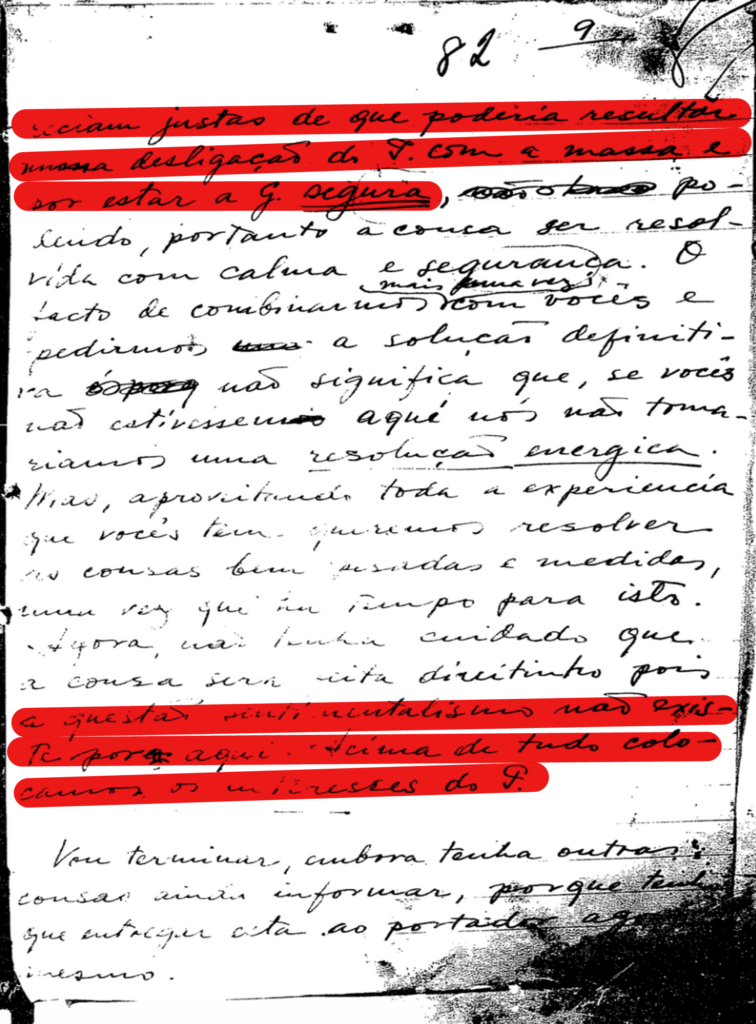 82 9
reciam justas de que poderia resultar
numa desligação do P. com a massa e
por estar a G. segura, po-
dendo, portanto a cousa ser resol-
vida com calma e segurança. O
mais uma vez
facto de combinarmos com vocês e
pedirmos a solução definiti-
va não significa que, se vocês
não estivessem aqui nós não toma-
riamos uma resolução energica.
Mas, aproveitando toda a experiencia
que vocês tem queremos resolver
as cousas bem pesadas e medidas,
uma vez que ha tempo para isto.
Agora, não tenha cuidado que
a cousa sera feita direitinho pois
a questão sentimentalismo não exis-
te por aqui. Acima de tudo colo-
camos os interesses do P.
Vou terminar, embora tenha outras
cousas ainda informar, porque tenho
que entregar esta ao portador agora
mesmo.